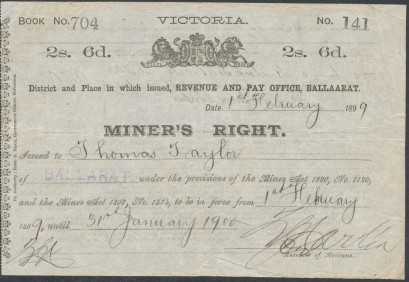 BOOK No. 704 VICTORIA. No. 141
2s. 6d. 2s. 6d.
District and Place in which issued, REVENUE AND PAY OFFICE, BALLAARAT.
Date, 1st February 1899
MINER'S RIGHT.
Issued to Thomas Taylor
of BALLAARAT under the provisions of the Mines Act 1890, No. 1120,
and the Mines Act 1897, No. 1514, to be in force from 1st February
1899, until 31st January 1900
Receiver of Revenue.